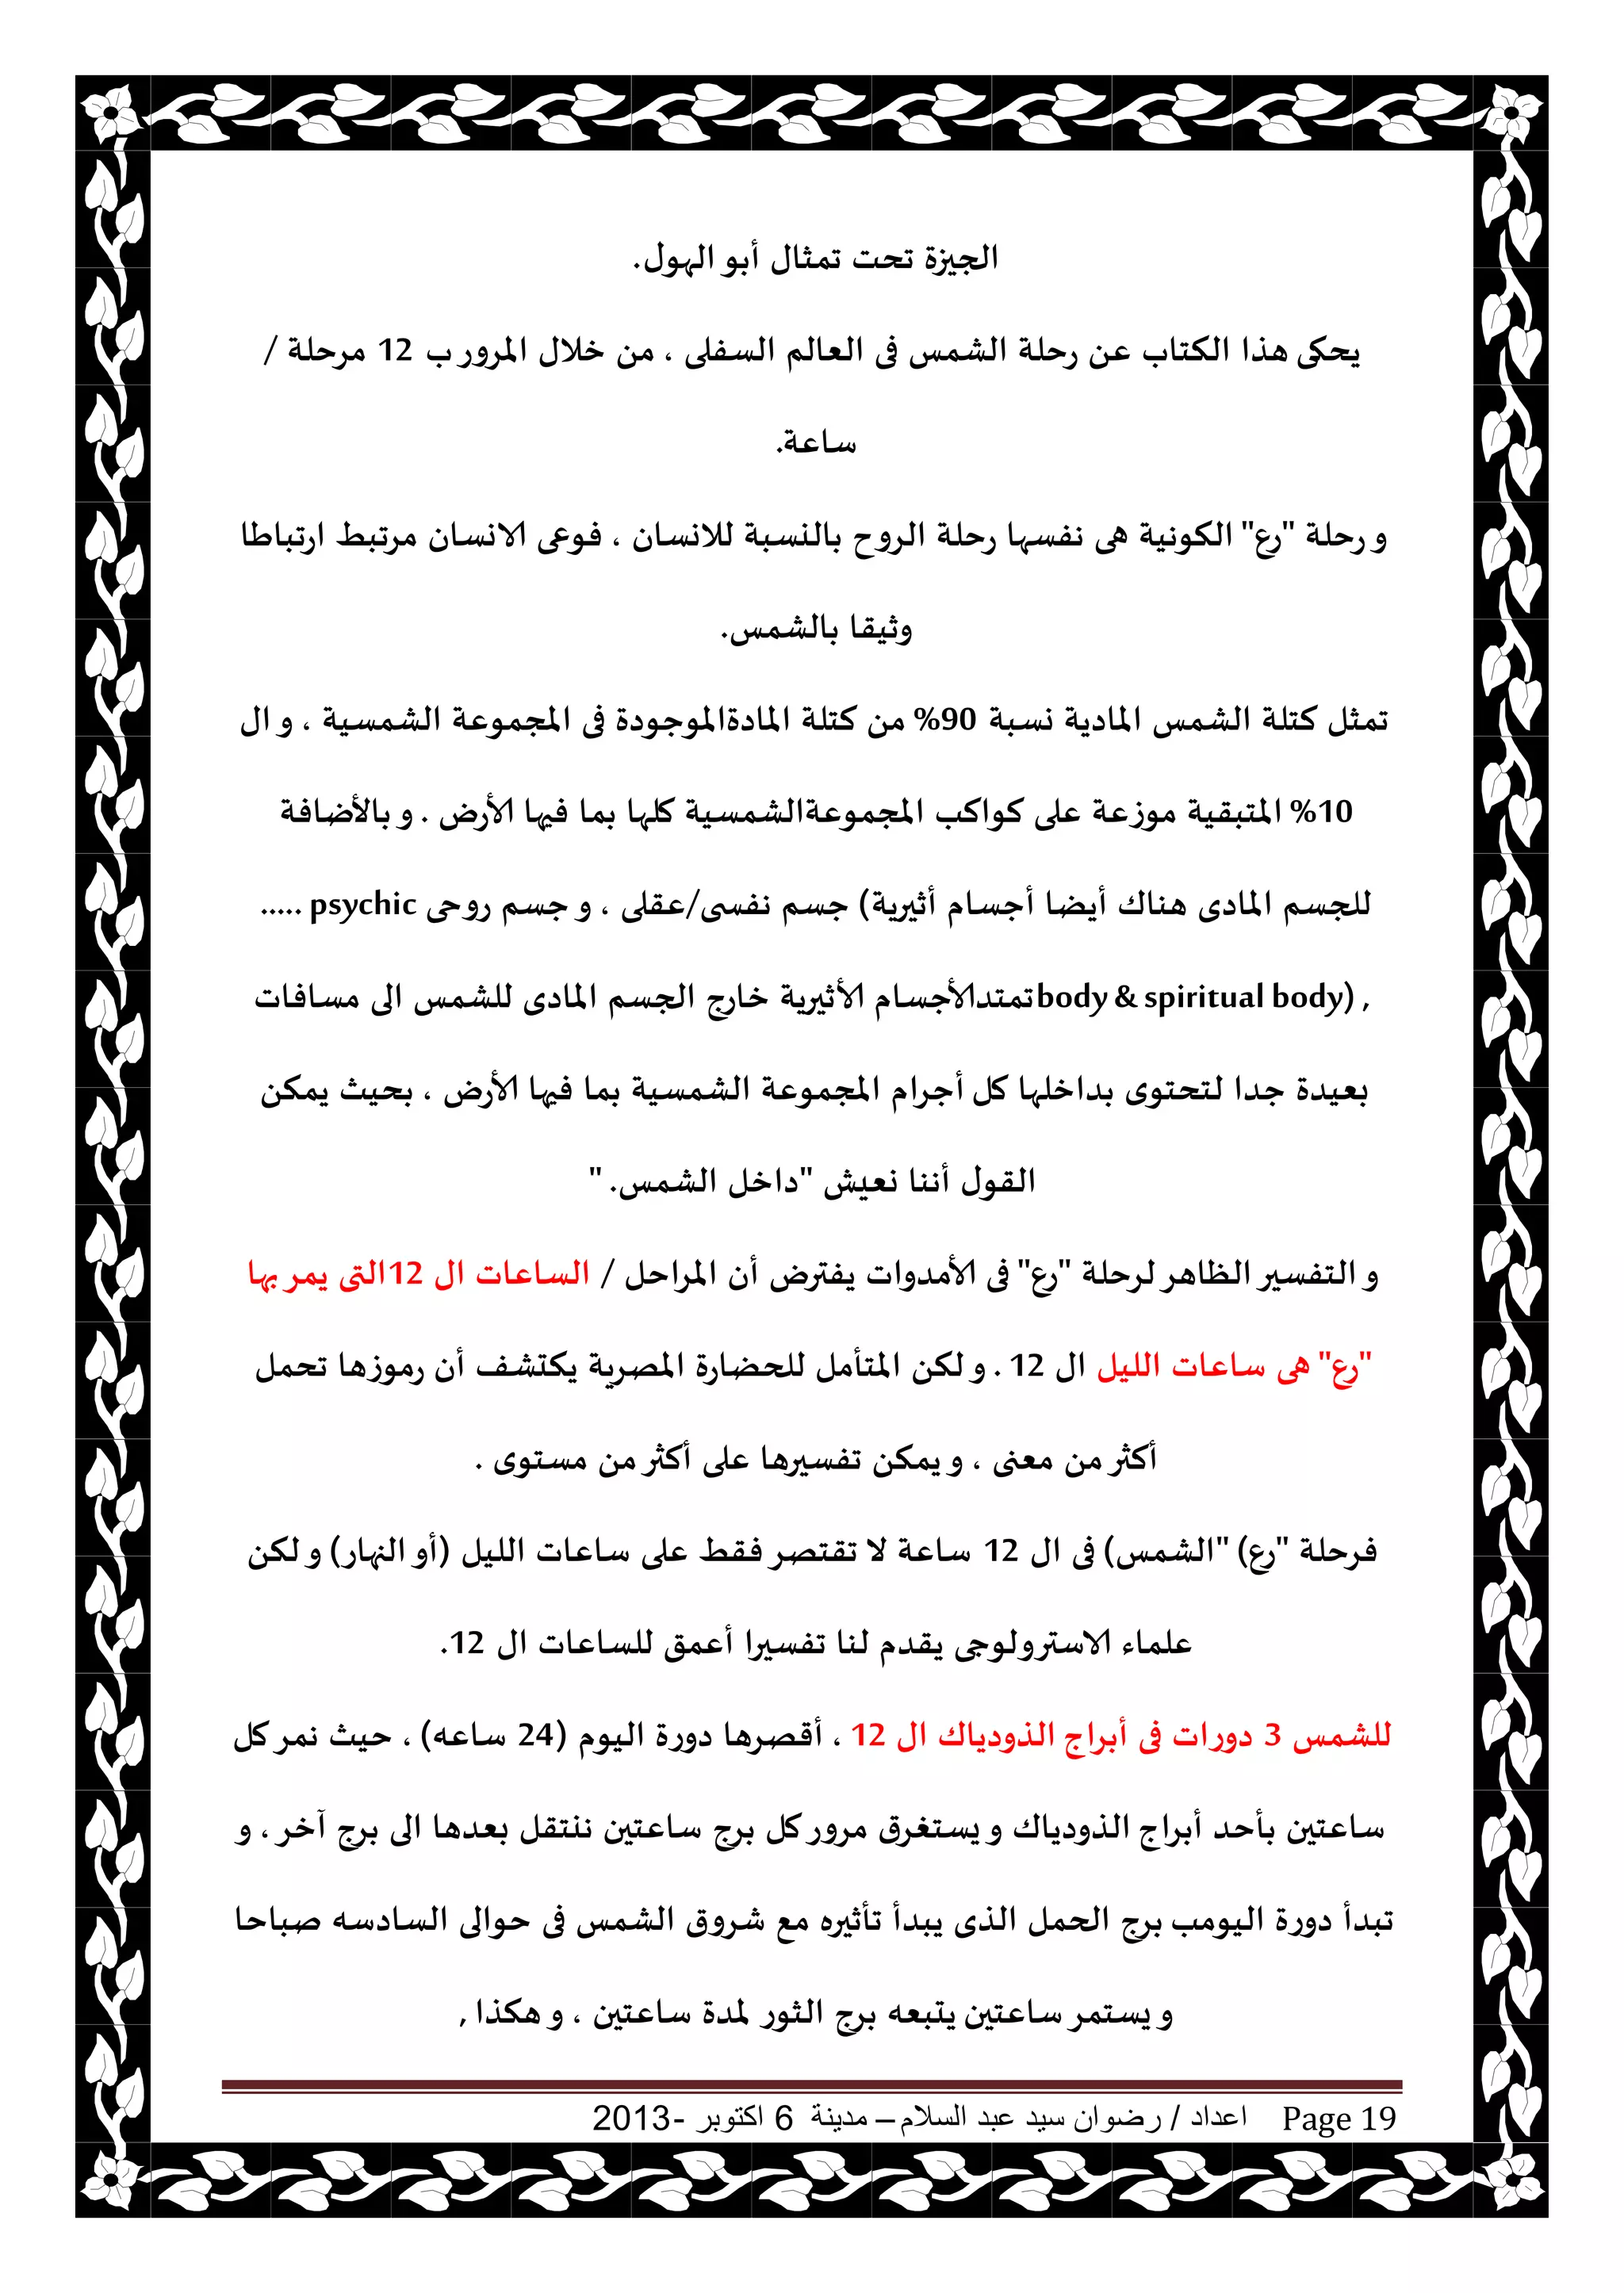 الجيزة تحت تمثال أبو الهول.
يحكى هذا الكتاب عن رحلة الشمس فى العالم السفلى ، من خلال المرور ب 12 مرحلة /
ساعة.
و رحلة "رع" الكونية هى نفسها رحلة الروح بالنسبة للانسان ، فوعى الانسان مرتبط ارتباطا
وثيقا بالشمس.
تمثل كتلة الشمس المادية نسبة 90% من كتلة المادةالموجودة فى المجموعة الشمسية ، و ال
10% المتبقية موزعة على كواكب المجموعةالشمسية كلها بما فيها الأرض . و بالأضافة
للجسم المادى هناك أيضا أجسام أثيرية) جسم نفسى/عقلى ، و جسم روحى psychic .....
body & spiritual body) , تمتدالأجسام الأثيرية خارج الجسم المادى للشمس الى مسافات
بعيدة جدا لتحتوى بداخلها كل أجرام المجموعة الشمسية بما فيها الأرض ، بحيث يمكن
القول أننا نعيش "داخل الشمس. "
و التفسير الظاهر لرحلة "رع" فى الأمدوات يفترض أن المراحل / الساعات ال 12التى يمر بها
"رع" هى ساعات الليل ال 12 . و لكن المتأمل للحضارة المصرية يكتشف أن رموزها تحمل
أكثر من معنى ، و يمكن تفسيرها على أكثر من مستوى .
فرحلة "رع) "الشمس) فى ال 12 ساعة لا تقتصر فقط على ساعات الليل (أو النهار) و لكن
علماء الاسترولوجى يقدم لنا تفسيرا أعمق للساعات ال 12.
للشمس 3 دورات فى أبراج الذودياك ال 12 ، أقصرها دورة اليوم (24 ساعه) ، حيث نمر كل
ساعتين بأحد أبراج الذودياك و يستغرق مرور كل برج ساعتين ننتقل بعدها الى برج آخر ، و
تبدأ دورة اليومب برج الحمل الذى يبدأ تأثيره مع شروق الشمس فى حوالى السادسه صباحا
و يستمر ساعتين يتبعه برج الثور لمدة ساعتين ، و هكذا ,
Page 19 اعداد / رضوان سيد عبد السلام – مدينة 6 اكتوبر - 2013